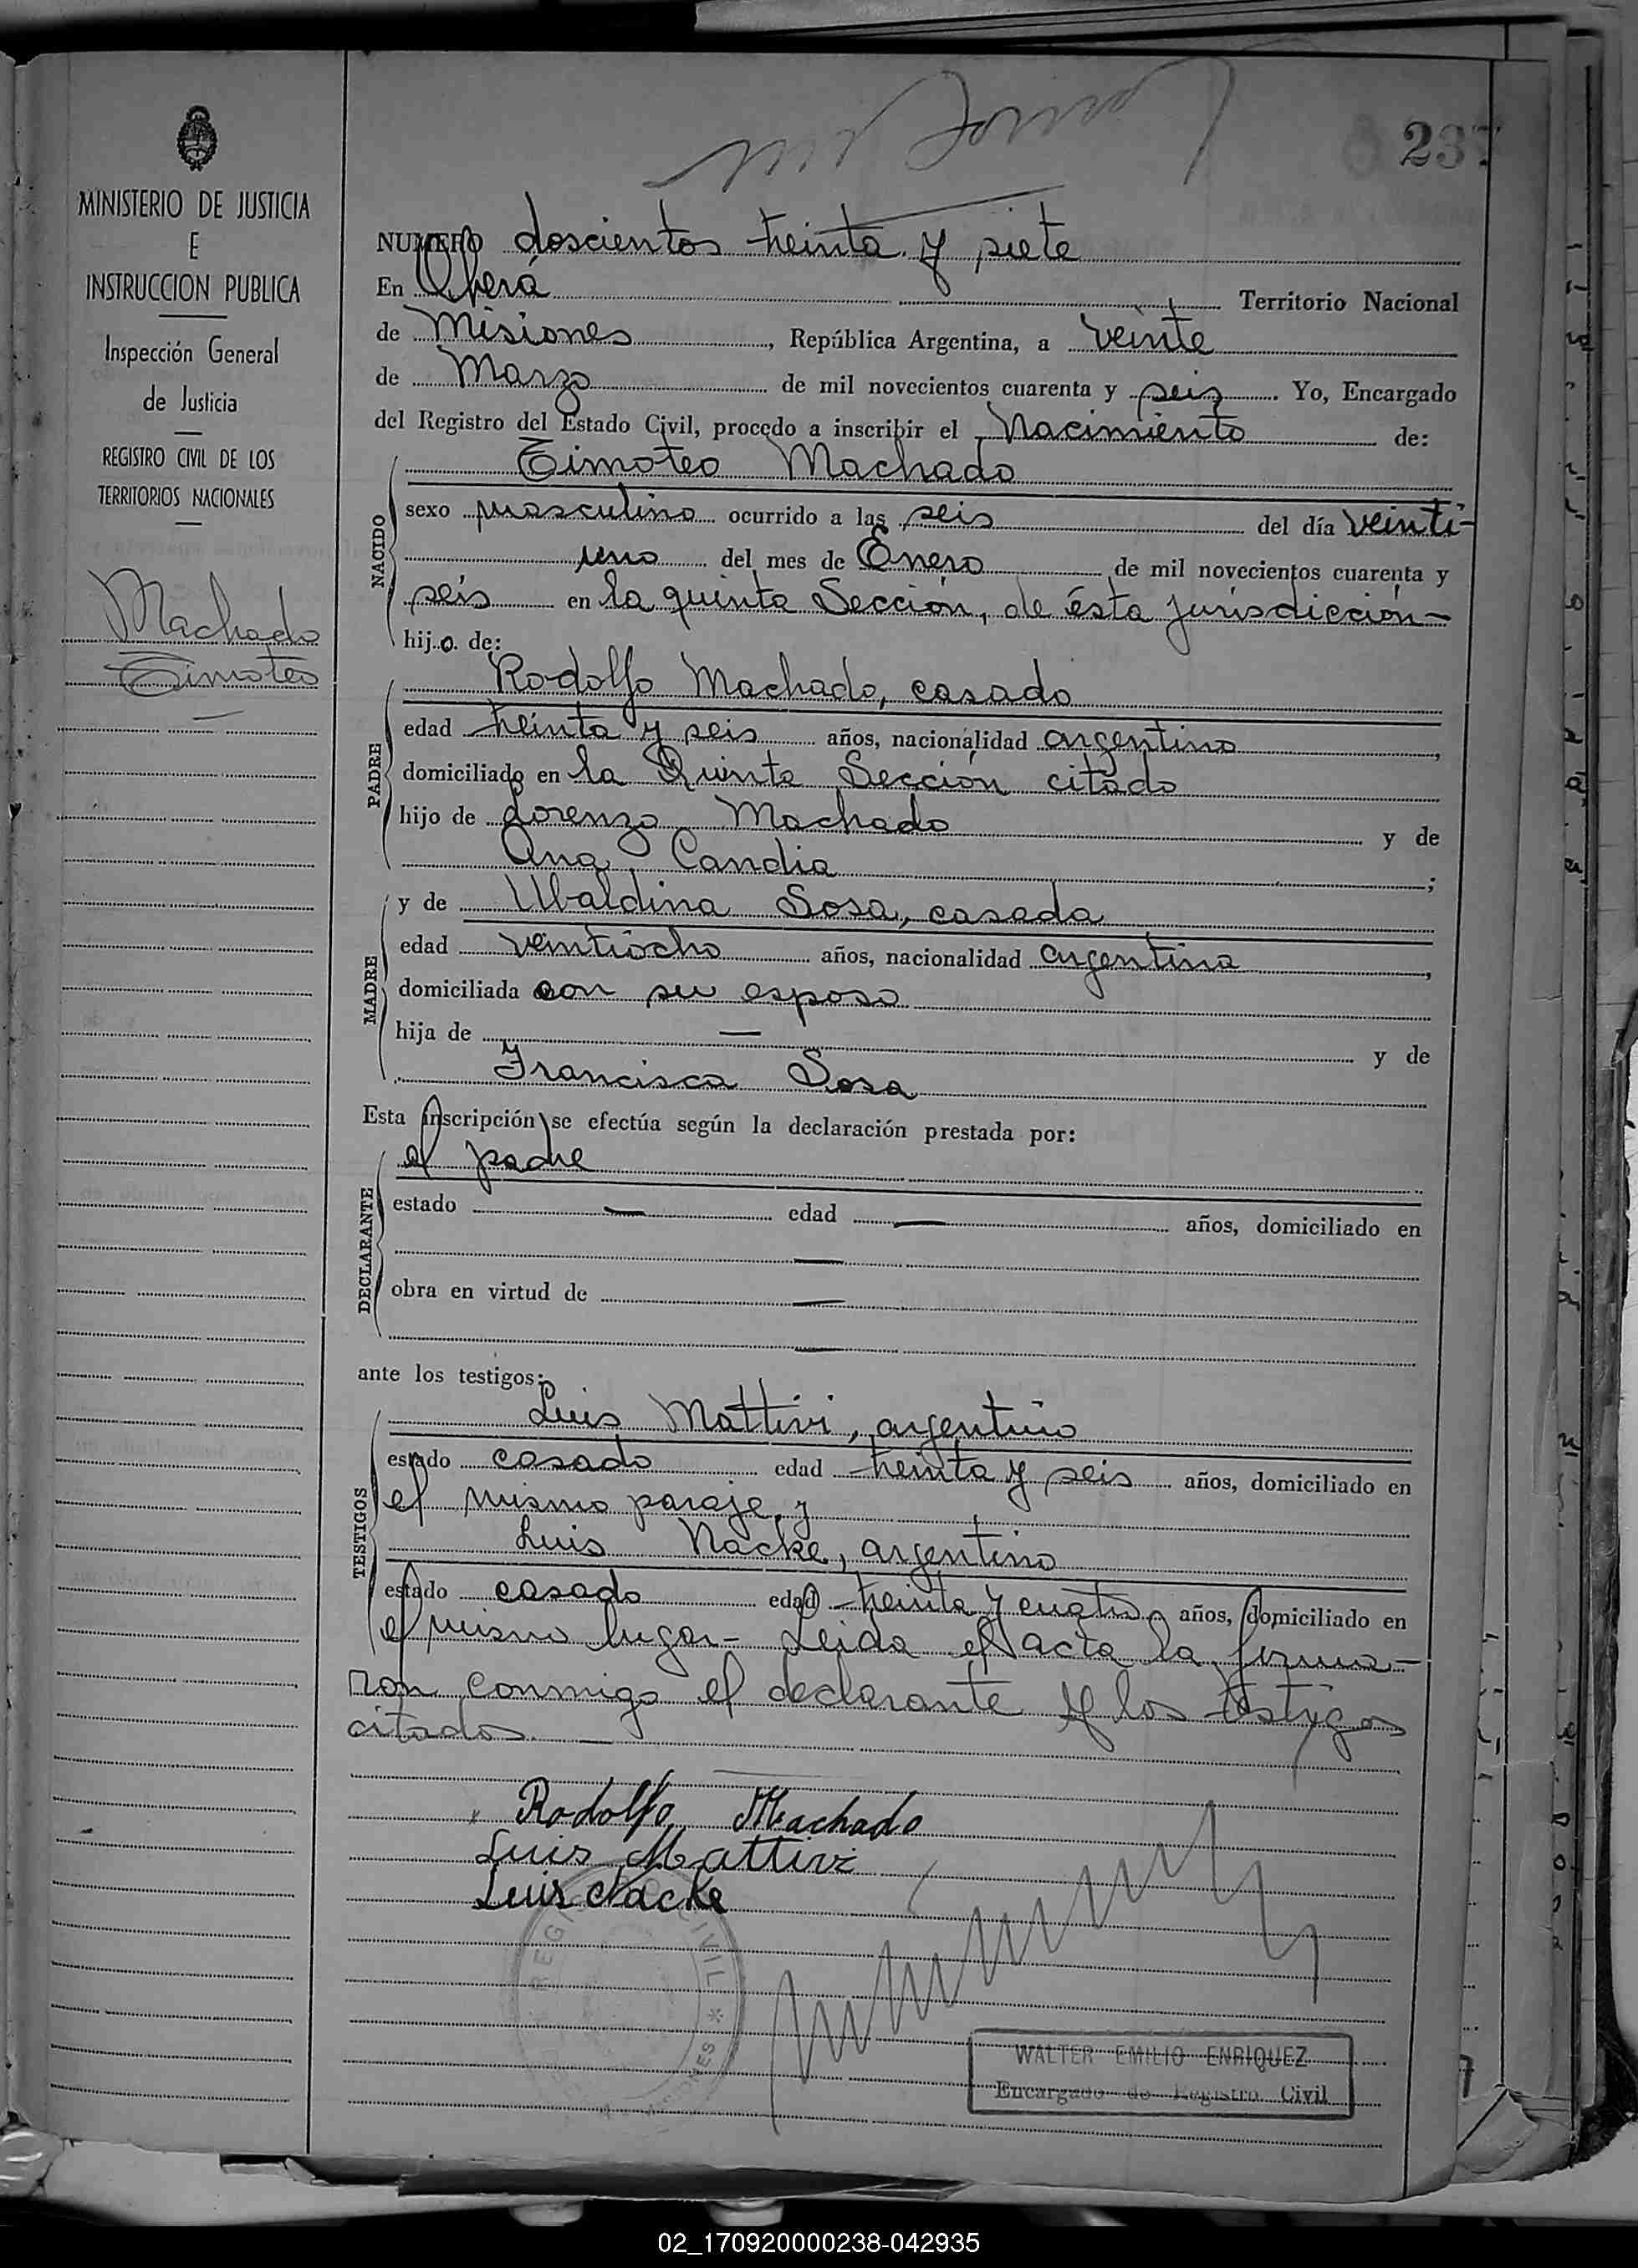 237
MINISTERIO DE JUSTICIA
E
INSTRUCCION PUBLICA
Inspección General
de Justicia
REGISTRO CIVIL DE LOS
TERRITORIOS NACIONALES
Machado
Timoteo
NUMERO doscientos treinta y siete
En Oberá Territorio Nacional
de Misiones, República Argentina, a veinte
de Marzo de mil novecientos cuarenta y seis. Yo, Encargado
del Registro del Estado Civil, procedo a inscribir el Nacimiento de:
Timoteo Machado
NACIDO
sexo masculino ocurrido a las seis del día veinti-
uno del mes de Enero de mil novecientos cuarenta y
seis en la quinta Sección, de ésta jurisdicción-
hijo de:
Rodolfo Machado, casado
PADRE
edad treinta y seis años, nacionalidad argentino,
domiciliado en la Quinta Sección citado
hijo de Lorenzo Machado y de
Ana Candia;
y de Ubaldina Sosa, casada
MADRE
edad veintiocho años, nacionalidad argentina,
domiciliada con su esposo
hija de — y de
Francisca Sosa
Esta inscripción se efectúa según la declaración prestada por:
el padre
DECLARANTE
estado — edad — años, domiciliado en
—
obra en virtud de —
—
ante los testigos:
Luis Mattivi, argentino
TESTIGOS
estado casado edad treinta y seis años, domiciliado en
el mismo paraje y
Luis Nacke, argentino
estado casado edad treinta y cuatro años, domiciliado en
el mismo lugar- Leida el acta la firma-
ron conmigo el declarante y los testigos
citados. —
Rodolfo Machado
Luis Mattivi
Luis Nacke
REGISTRO CIVIL * MISIONES
WALTER EMILIO ENRIQUEZ
Encargado de Registro Civil
02_170920000238-042935